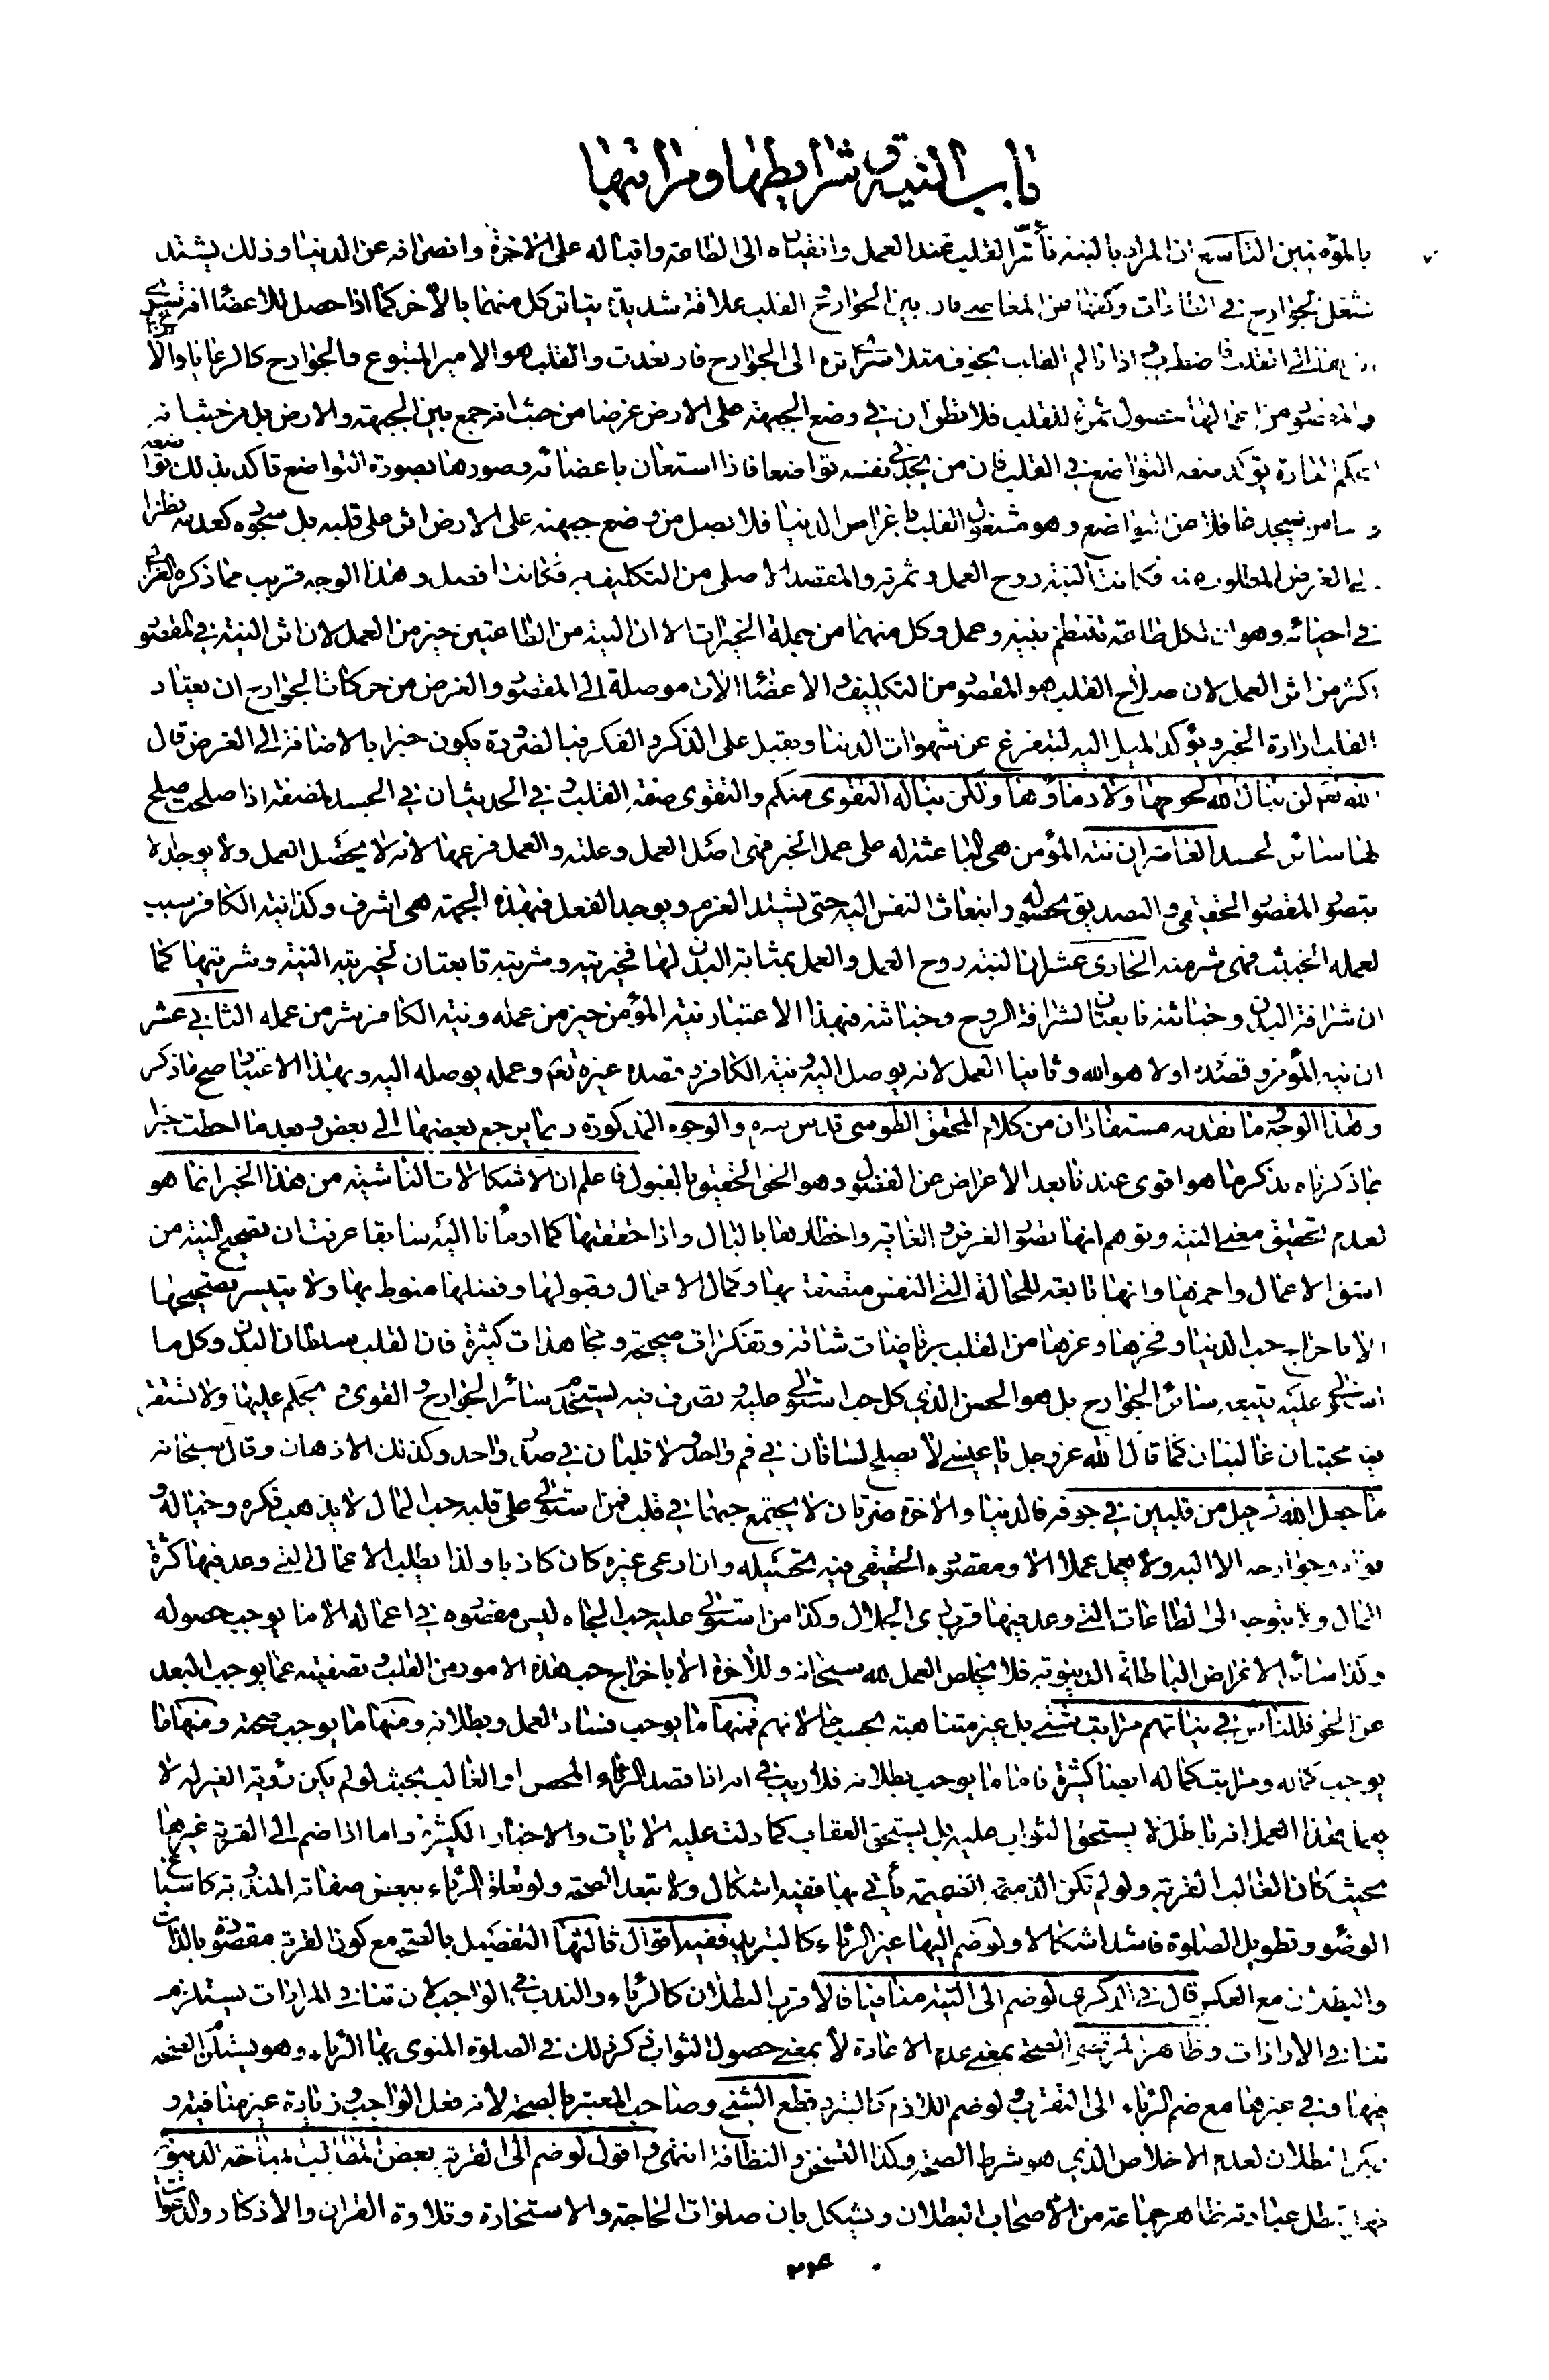 باب النية وشرايطها ومراتبها
بالمؤمنين التاسع ان المراد بالنية تأثر القلب عند العمل وانقياده الى الطاعة واقباله على الاخرة وانصرافه عن الدنيا وذلك يشتد
بشغل الجوارح في الطاعات وكفها عن المعاصي فان بين الجوارح والقلب علاقة شديدة يتاثر كل منهما بالاخر كما اذا حصل للاعضاء افة سرى
اثرها الى القلب فاضطرب واذا تالم القلب بخوف مثلا سرى اثره الى الجوارح فارتعدت والقلب هو الامير المتبوع والجوارح كالرعايا والاتباع
والمقصود من اعمالها حصول ثمرة للقلب فلا تظن ان في وضع الجبهة على الارض غرضا من حيث انه جمع بين الجبهة والارض بل من حيث انه
بحكم العادة يؤكد صفة التواضع في القلب فان من يجد في نفسه تواضعا فاذا استعان باعضائه وصورها بصورة التواضع تاكد بذلك تواضعه
واما من يسجد غافلا عن التواضع وهو مشغول القلب باغراض الدنيا فلا يصل من وضع جبهته على الارض اثر على قلبه بل سجوده كعدمه نظرا
الى الغرض المطلوب منه فكانت النية روح العمل وثمرته والمقصد الاصلي من التكليف به فكانت افضل وهذا الوجه قريب مما ذكره الغزالي
في احيائه وهو ان كل طاعة تنتظم بنية وعمل وكل منهما من جملة الخيرات الا ان النية من الطاعتين خير من العمل لان اثر النية في المقصود
اكثر من اثر العمل لان صلاح القلب هو المقصود من التكليف والاعضاء الات موصلة الى المقصود والغرض من حركات الجوارح ان يعتاد
القلب ارادة الخير ويؤكد الميل اليه ليتفرغ عن شهوات الدنيا ويقبل على الذكر والفكر فبالضرورة يكون خيرا بالاضافة الى الغرض قال
الله تعم لن ينال الله لحومها ولا دماؤها ولكن يناله التقوى منكم والتقوى صفة القلب وفي الحديث ان في الجسد لمضغة اذا صلحت صلح
لها سائر الجسد العاشر ان نية المؤمن هي الباعثة له على عمل الخير فهى اصل العمل وعلته والعمل فرعها لانه لا يحصل العمل ولا يوجد الا
بتصور المقصود الحقيقي والتصديق بحصوله وانبعاث النفس اليه حتى يشتد العزم ويوجد الفعل فبهذه الجهة هي اشرف وكذا نية الكافر سبب
لعمله الخبيث فهى شر منه الحادى عشر ان النية روح العمل والعمل بمثابة البدن لها فخيريته وشريته تابعتان لخيرية النية وشريتها كما
ان شرافة البدن وخباثته تابعتان لشرافة الروح وخباثته فبهذا الاعتبار نية المؤمن خير من عمله ونية الكافر شر من عمله الثاني عشر
ان نية المؤمن وقصده اولا هو الله وثانيا العمل لانه يوصل اليه ونية الكافر وقصده غيره تعم وعمله يوصله اليه وبهذا الاعتبار صح ما ذكر
وهذا الوجه ما تقدمه مستفادان من كلام المحقق الطوسي قدس سره والوجوه المذكورة ربما يرجع بعضها الى بعض وبعد ما احطت خبرا
بما ذكرناه نذكر ما هو اقوى عندنا بعد الاعراض عن الفضول وهو الحق الحقيق بالقبول فاعلم ان الاشكالات الناشية من هذا الخبر انما هو
لعدم تحقيق معنى النية وتوهم انها تصور الغرض والغاية واخطارها بالبال واذا حققتها كما اومأنا اليه سابقا عرفت ان تصحيح النية من
اشق الاعمال واحمزها وانها تابعة للحالة التي النفس متصفة بها وكمال الاعمال وقبولها وفضلها منوط بها ولا يتيسر تصحيحها
الا باخراج حب الدنيا وفخرها وعزها من القلب برياضات شاقة وتفكرات صحيحة ومجاهدات كثيرة فان القلب سلطان البدن وكل ما
استولى عليه يتبعه سائر الجوارح بل هو الحصن الذي كل حب استولى عليه وتصرف فيه يستخدم سائر الجوارح والقوى ويحكم عليها ولا تستقر
فيه محبتان غالبتان كما قال الله عز وجل يا عيسى لا يصلح لسانان في فم واحد ولا قلبان في صدر واحد وكذلك الاذهان وقال سبحانه
ما جعل الله لرجل من قلبين في جوفه فالدنيا والاخرة ضرتان لا يجتمع حبهما في قلب فمن استولى على قلبه حب المال لا يذهب فكره وخياله و
قواه وجوارحه الا اليه ولا يعمل عملا الا ومقصوده الحقيقي فيه تحصيله وان ادعى غيره كان كاذبا ولذا يطلب الاعمال التي وعد فيها كثرة
المال ولا يتوجه الى الطاعات التي وعد فيها قرب ذي الجلال وكذا من استولى عليه حب الجاه ليس مقصوده في اعماله الا ما يوجب حصوله
وكذا سائر الاغراض الباطلة الدنيوية فلا يخلص العمل لله سبحانه وللاخرة الا باخراج حب هذه الامور من القلب وتصفيته عما يوجب البعد
عن الحق فللناس في نياتهم مراتب شتى بل غير متناهية بحسب حالاتهم فمنها ما يوجب فساد العمل وبطلانه ومنها ما يوجب صحته ومنها ما
يوجب كماله ومراتب كماله ايضا كثيرة فاما ما يوجب بطلانه فلا ريب في انه اذا قصد الرياء المحض او الغالب بحيث لو لم يكن رؤية الغير له لا
يعمل هذا العمل انه باطل لا يستحق الثواب عليه بل يستحق العقاب كما دلت عليه الايات والاخبار الكثيرة واما اذا ضم الى القربة غيرها
بحيث كان الغالب القربة ولو لم تكن الضميمة يأتي بها ففيه اشكال ولا تبعد الصحة ولو تعلق الرياء ببعض صفاته المندوبة كاسباغ
الوضوء وتطويل الصلوة فاشد اشكالا ولو ضم اليها غير الرياء كالتبريد ففيه اقوال ثالثها التفصيل بالصحة مع كون القربة مقصودة بالذات
والبطلان مع العكس قال في الذكرى لو ضم الى النية منافيا فالاقرب البطلان كالرياء والندب في الواجب لان تنافي المرادات يستلزم
تنافي الارادات وظاهر المرتضى الصحة بمعنى عدم الاعادة لا بمعنى حصول الثواب ذكر ذلك في الصلوة المنوى بها الرياء وهو يستلزم الصحة
فيها وفي غيرها مع ضم الرياء الى التقرب ولو ضم اللازم كالتبرد قطع الشيخ وصاحب المعتبر بالصحة لانه فعل الواجب وزيادة غير منافية و
يمكن البطلان لعدم الاخلاص الذي هو شرط الصحة وكذا التسخن والنظافة انتهى واقول لو ضم الى القربة بعض المطالب المباحة الدنيوية
فهل تبطل عبادته ظاهر جماعة من الاصحاب البطلان ويشكل بان صلوات الحاجة والاستخارة وتلاوة القران والاذكار والدعوات